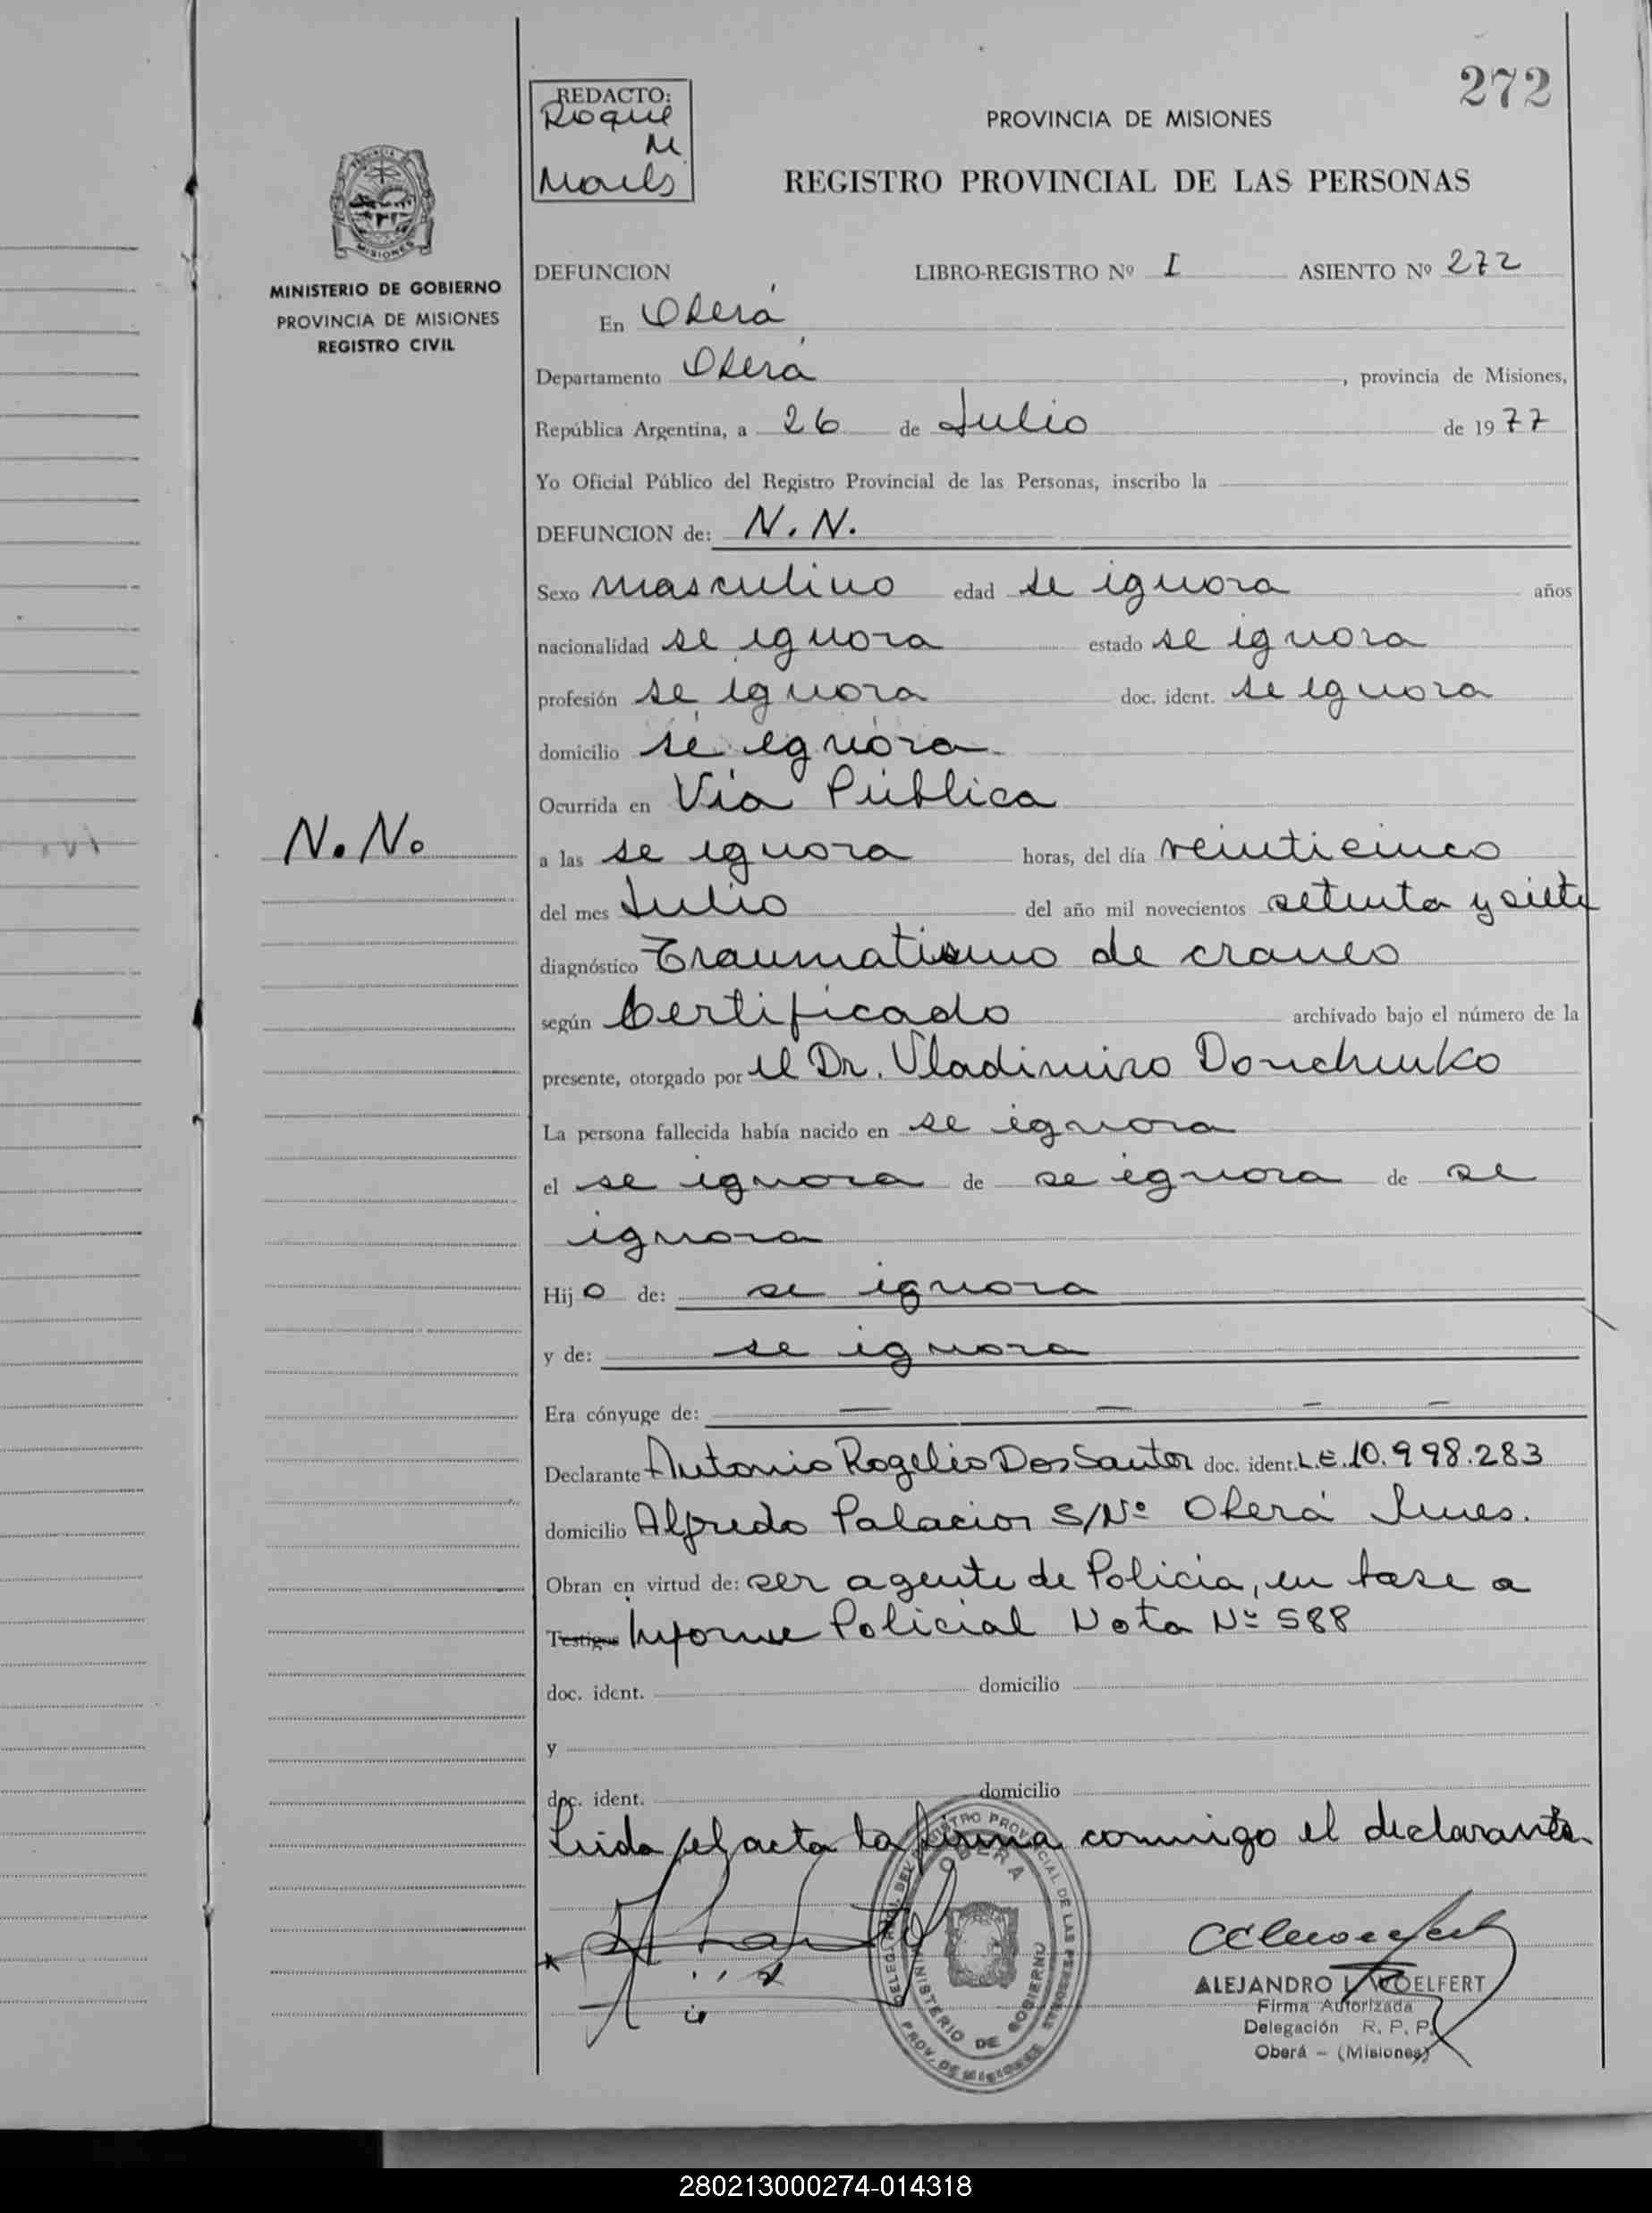 272
REDACTO:
Roque
M
PROVINCIA DE MISIONES
REGISTRO PROVINCIAL DE LAS PERSONAS
MINISTERIO DE GOBIERNO
PROVINCIA DE MISIONES
REGISTRO CIVIL
DEFUNCION LIBRO-REGISTRO Nº I ASIENTO Nº 272
En Oberá
Departamento Oberá, provincia de Misiones,
República Argentina, a 26 de Julio de 1977
Yo Oficial Público del Registro Provincial de las Personas, inscribo la
DEFUNCION de: N. N.
Sexo masculino edad se ignora años
nacionalidad se ignora estado se ignora
profesión se ignora doc. ident. se ignora
domicilio se ignora
Ocurrida en Vía Pública
N. N.
a las se ignora horas, del día veinticinco
del mes Julio del año mil novecientos setenta y siete
diagnóstico Traumatismo de craneo
según Certificado archivado bajo el número de la
presente, otorgado por el Dr. Vladimiro Donchenko
La persona fallecida había nacido en se ignora
el se ignora de se ignora de se
ignora
Hijo de: se ignora
y de: se ignora
Era cónyuge de: — — — —
Declarante Antonio Rogelio Dos Santos doc. ident. L.E. 10.998.283
domicilio Alfredo Palacios S/Nº Oberá Mnes.
Obran en virtud de: ser agente de Policía, en base a
Testigos Informe Policial Nota Nº 588
doc. ident. domicilio
y
doc. ident. domicilio
Leida el acta la firma conmigo el declarante.
DELEG. DEL REGISTRO PROVINCIAL DE LAS PERSONAS
OBERA
MINISTERIO DE GOBIERNO
PROV. DE MISIONES
ALEJANDRO L. WOELFERT
Firma Autorizada
Delegación R. P. P.
Oberá - (Misiones)
280213000274-014318